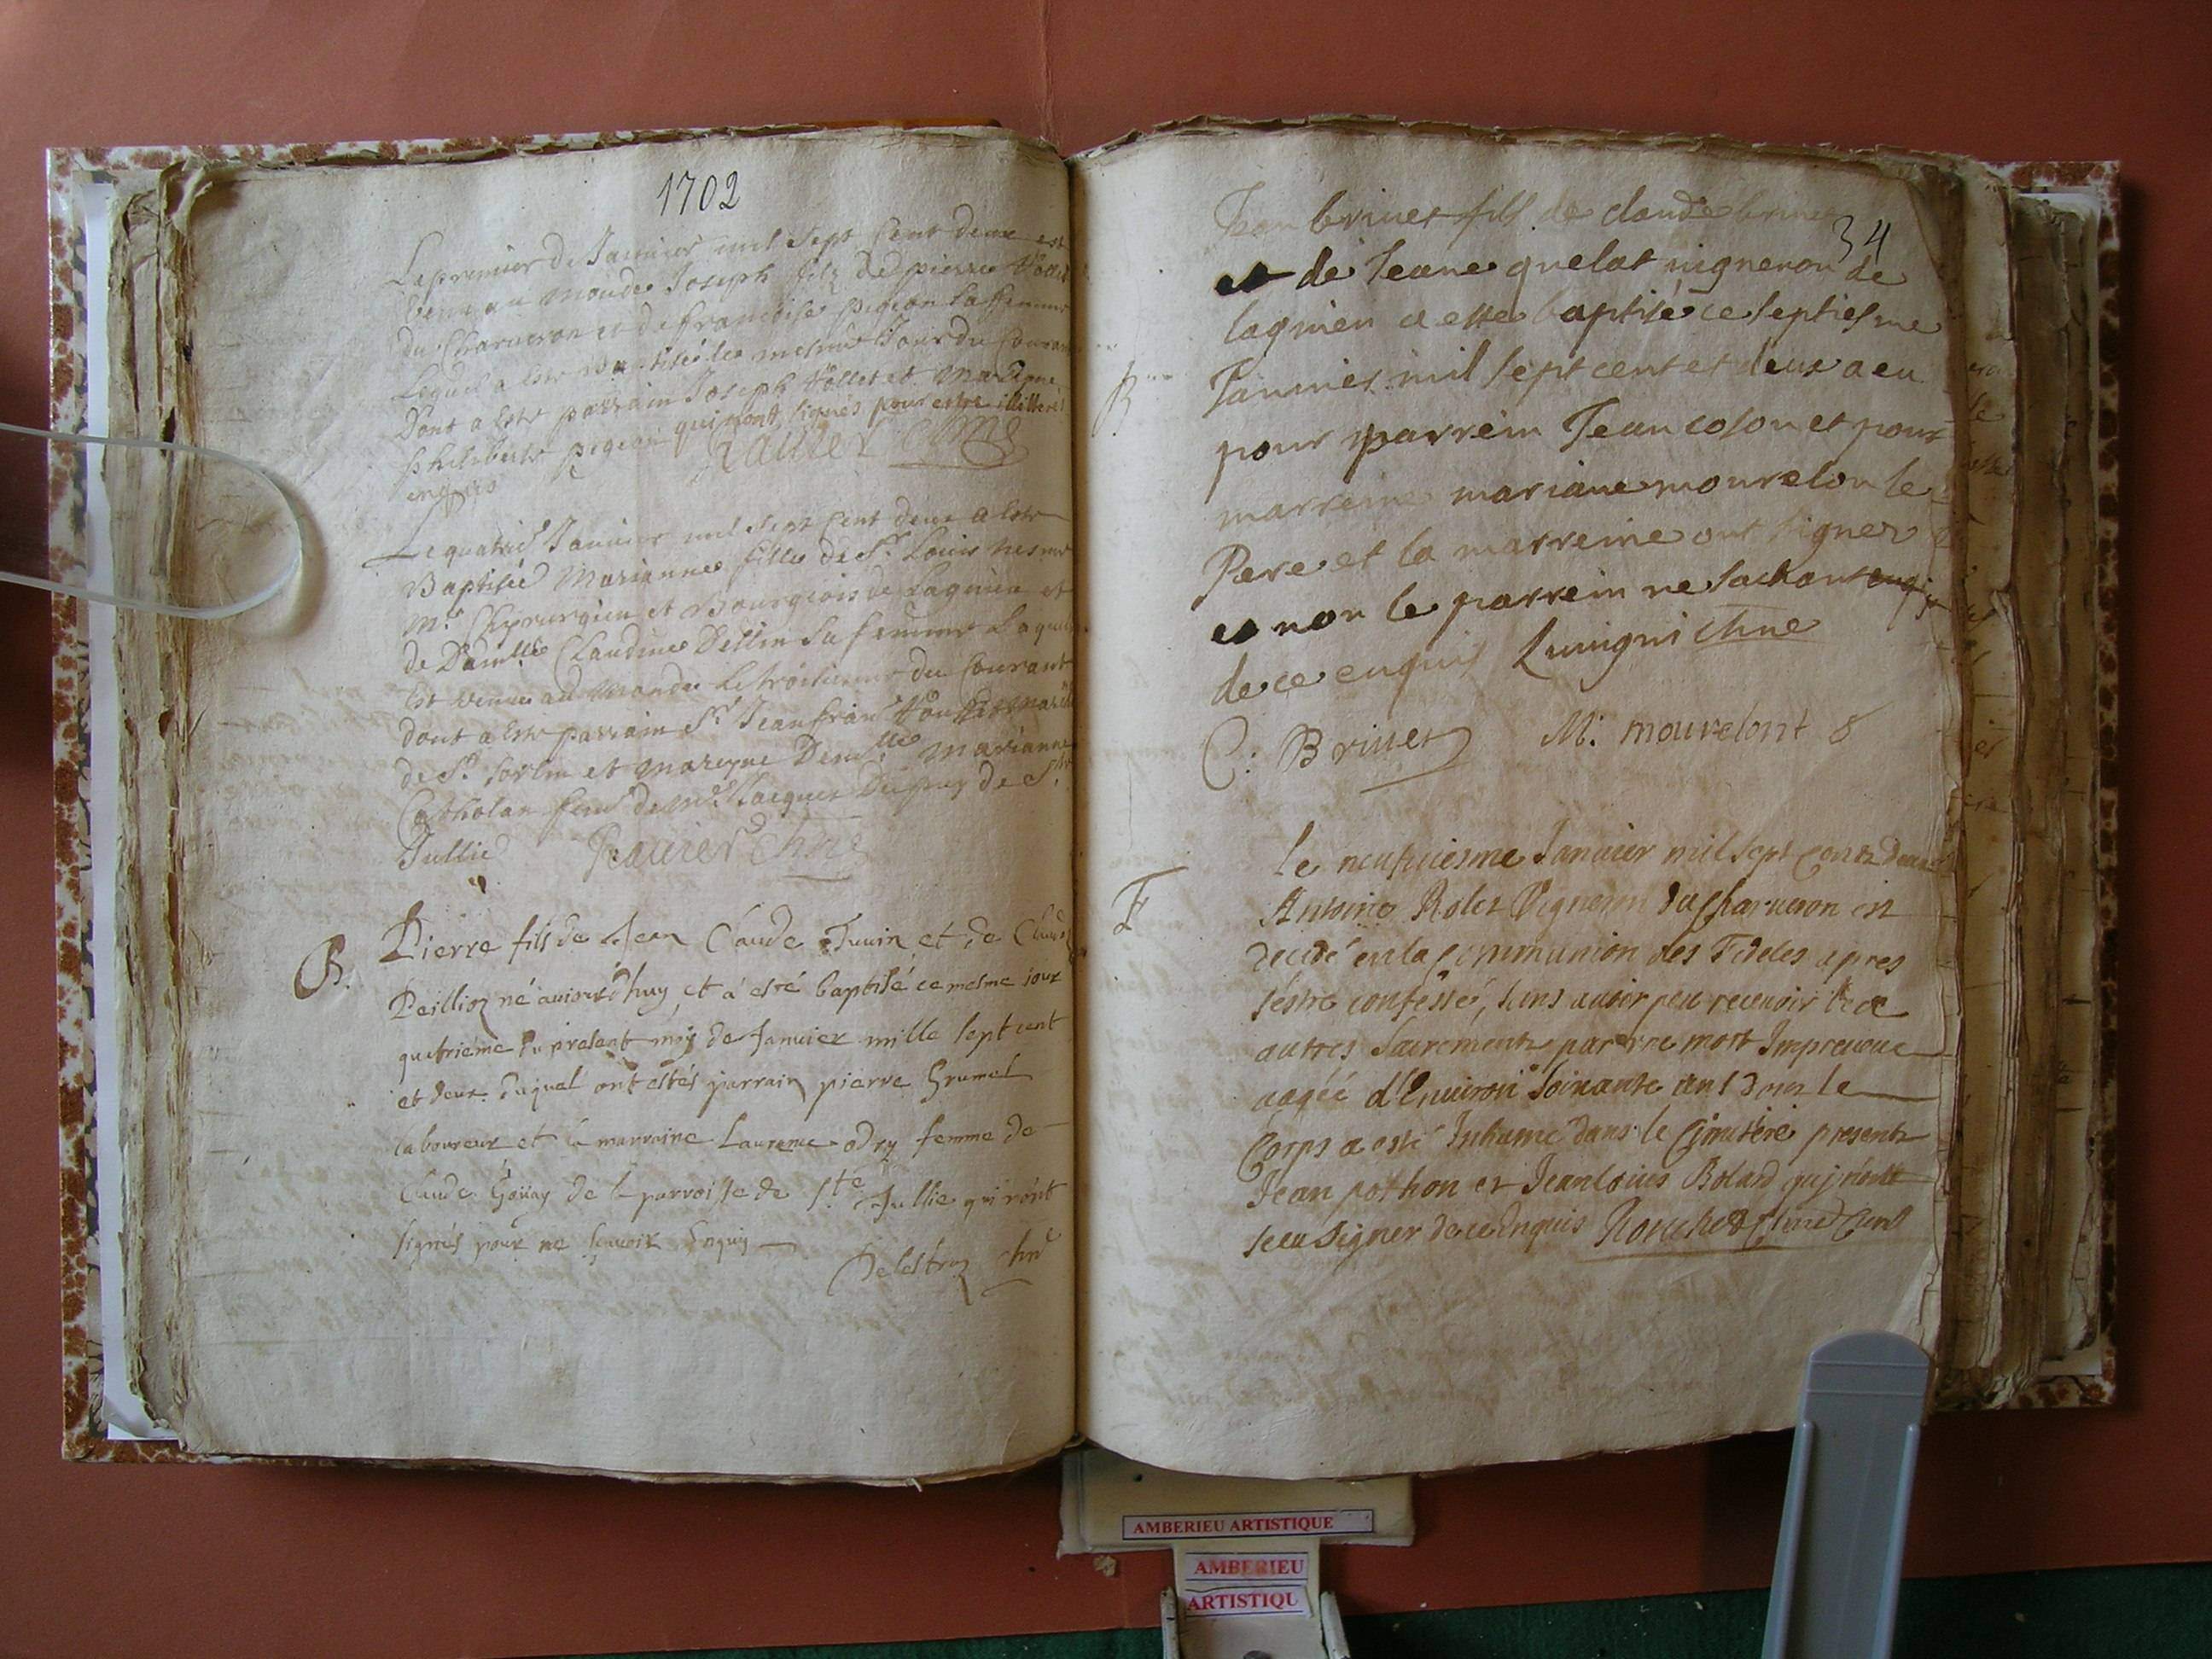 1702
Le premier de Janvier mil sept Cent deux est
venu au monde Joseph filz de pierre
du Charveron et de francoise pigeon sa femme
Lequel a este Baptisé le mesme Jour du Courant
Dont a este parrain Joseph Vollet et Mareyne
philiberte pigeon qui n'ont signés pour estre illitterés
enquis
Le quatrie Janvier mil sept Cent deux a este
Baptisée Marianne fille de Sr. Louis
Mre. Chyrurgien et Bourgeois de Lagnieu et
de Damlle Claudine Dellin sa femme Laquelle
Est venue au Monde Le troisieme du Courant
dont a este parrain Sr. Jean fran
de St. Sorlin et Mareyne Demlle Marianne
femme de Jacques Dupuy de Ste
Jullie
B. Pierre fils de Jean Claude Juvin et de
Peillion né aujourd'huy et a esté baptisé ce mesme jour
quatrieme du present mois de Janvier mille sept cent
et deux. duquel ont estés parrain pierre Grumel
laboureur et la marraine Laurence odry femme de
Claude de la parroisse de Ste Jullie qui n'ont
signés pour ne sçavoir Enquis
34
Jean briues fils de claude briues
et de Jeane quelat vigneron de
lagnieu a este baptisé ce septiesme
B Januier mil sept cent et deux a eu
pour parrein Jean colon et pour
marreine mariane mourelon le
Pere et la marreine ont signer
et non le parrein ne sachant
de ce enquis
C: Briues M. mourelont
F
le neufuiesme Januier mil sept Cent deux
Antoine Rolet Vigneron du Charueron est
decedé en la Communion des Fideles apres
s'estre confessé, sans auoir peu recevoir les
autres Sacrements par une mort Impreueue
aagée d'Enuiron Soixante ans Dont le
Corps a esté Inhumé dans le Cimitere presents
Jean pothon et Jean louis Bolard qui n'ont
sceu Signer de ce Enquis
AMBERIEU ARTISTIQUE
AMBERIEU
ARTISTIQU